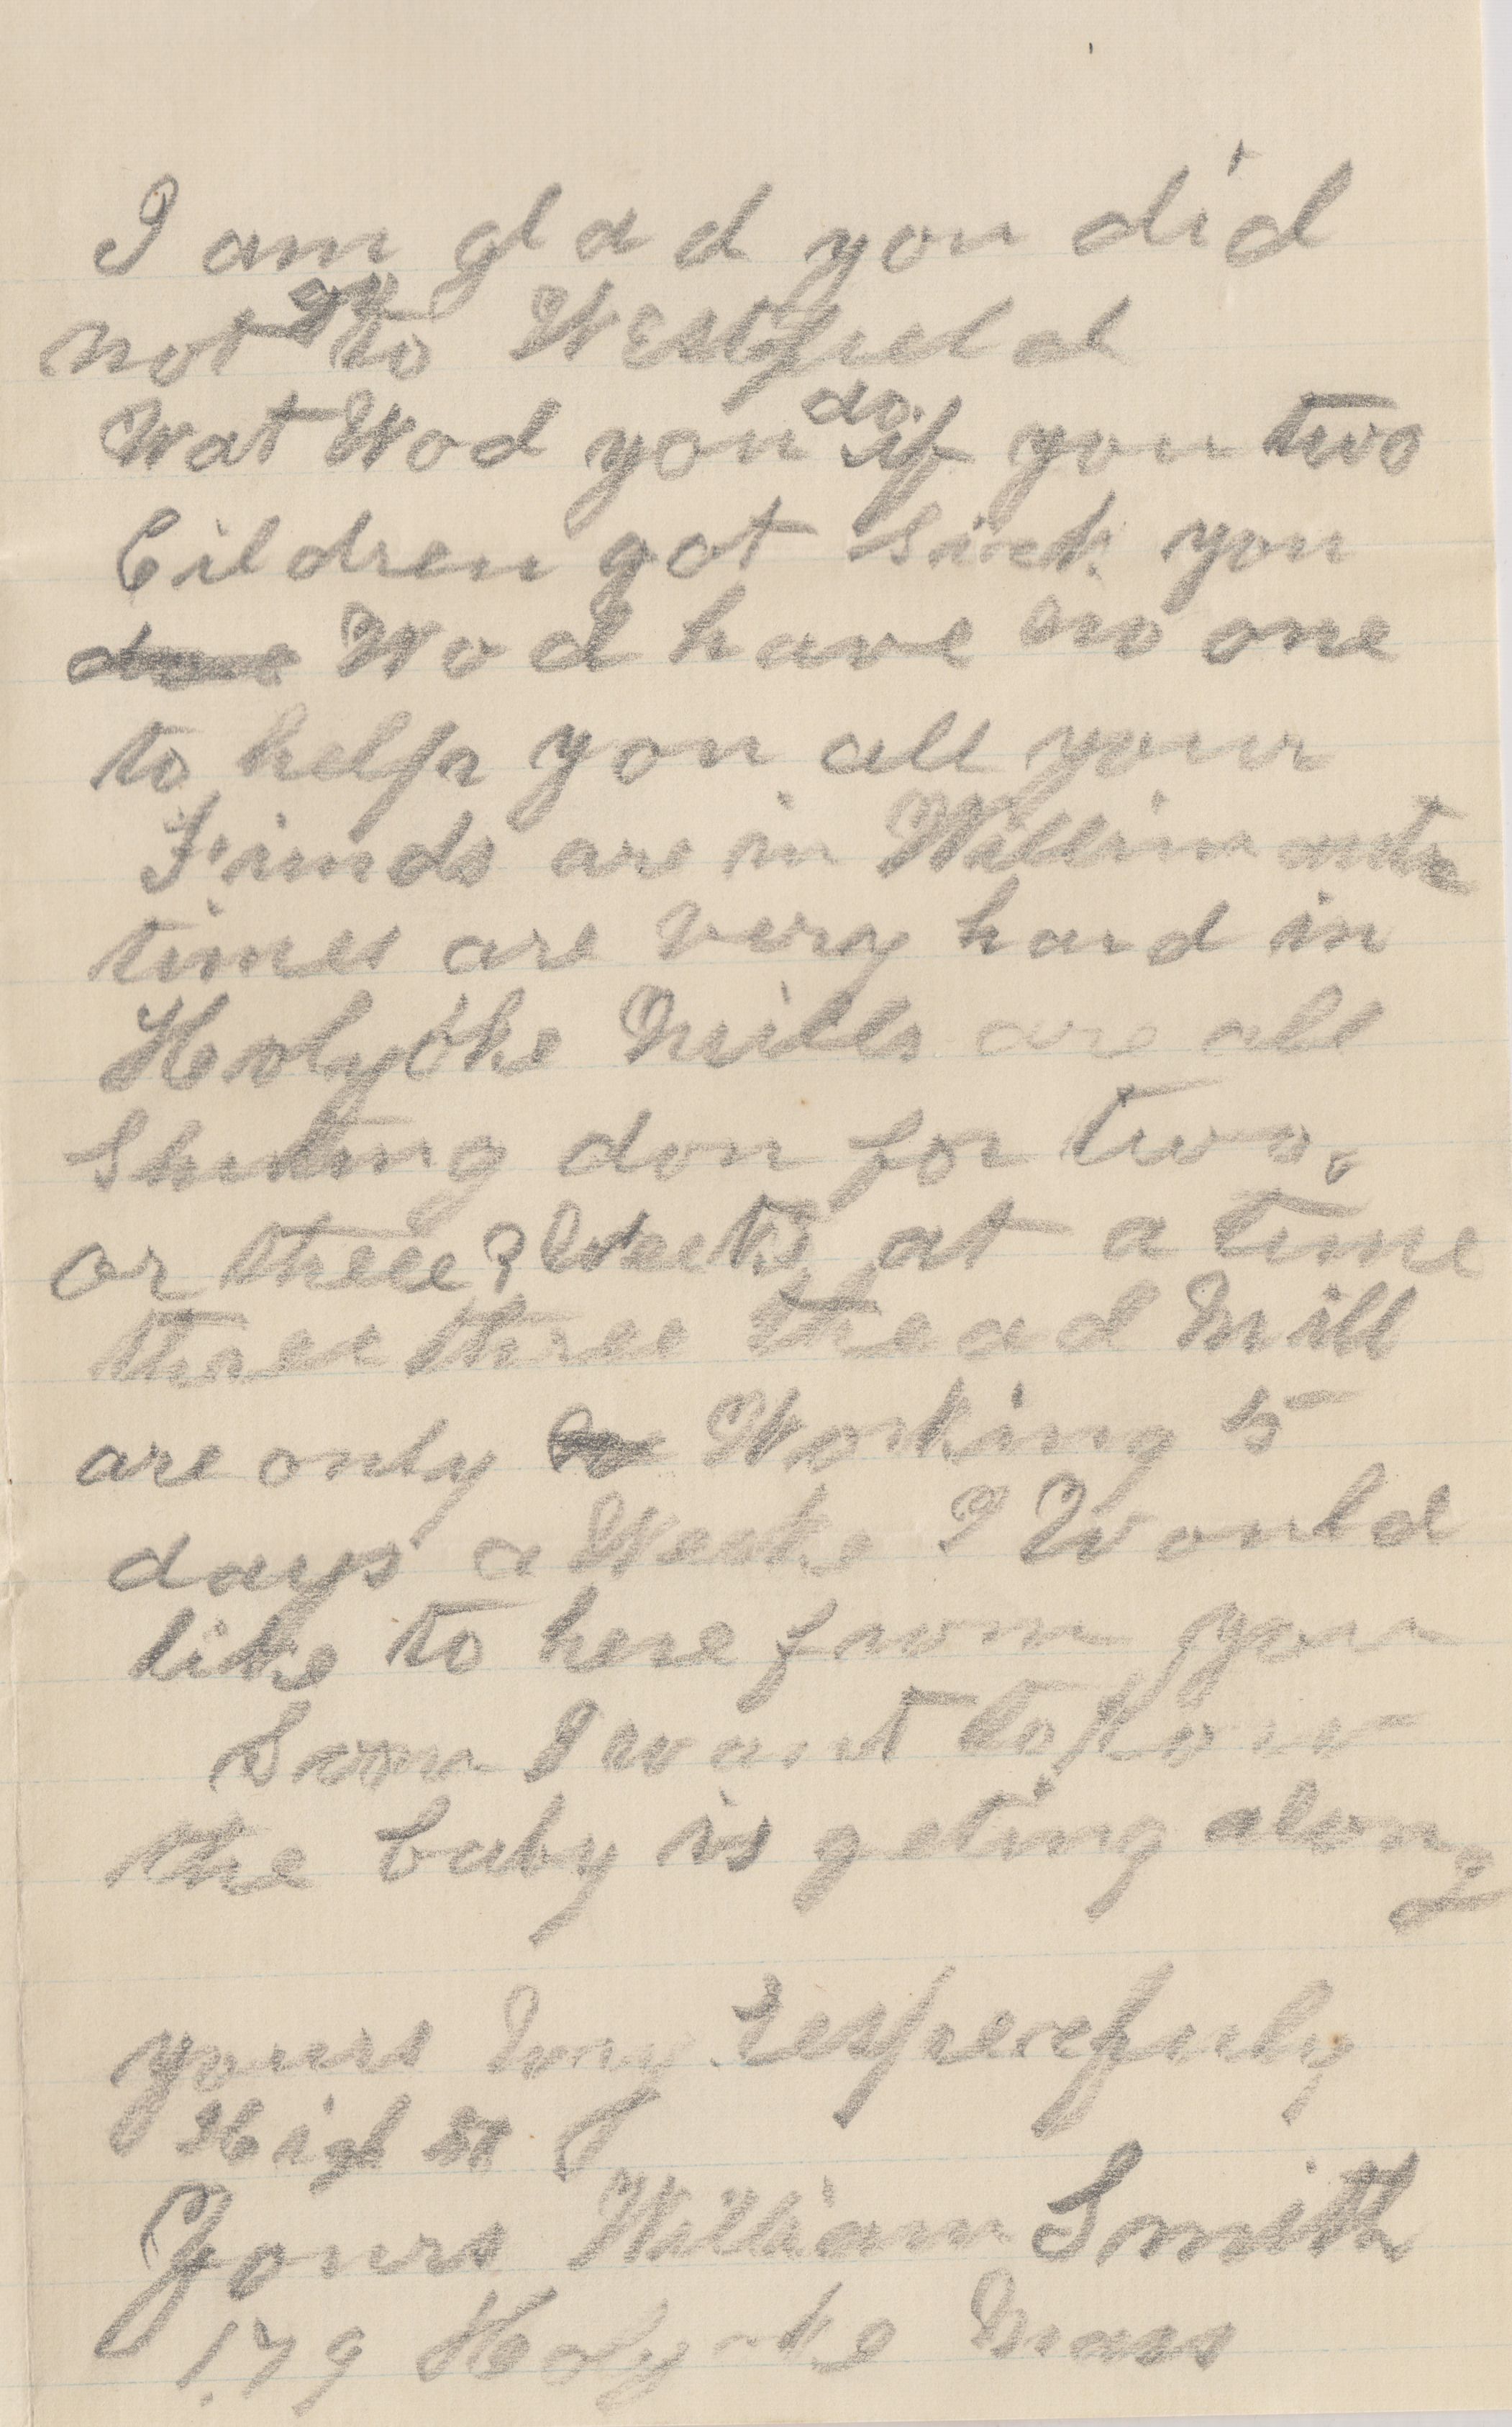 I am glad you did
not go to Westfield
Wat Wod you do if you two
Cildren got sick you
Wod have no one
to help you all your
Frinds are in Willimantic
times are very hard in
Holyoke Mills are all
Shuting don for two
or three 3 Weeks at a time
three three thead Mill
are only Working 5
days a Weeke I Would
like to here from you
Soon I want to Kow
the baby is geting along
yours very respecefuly
High st
Yours William Smith
179 Holyoke Mass